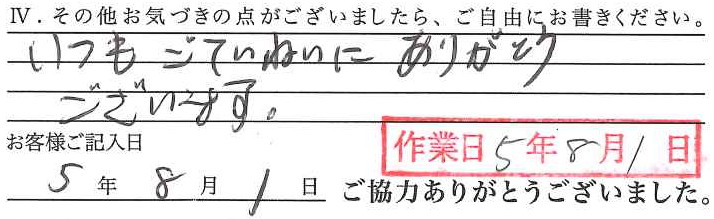 Ⅳ．その他お気づきの点がございましたら、ご自由にお書きください。
いつも ごていねいに ありがとう
ございます。
お客様ご記入日
作業日 5年 8月 1日
5 年 8 月 1 日 ご協力ありがとうございました。